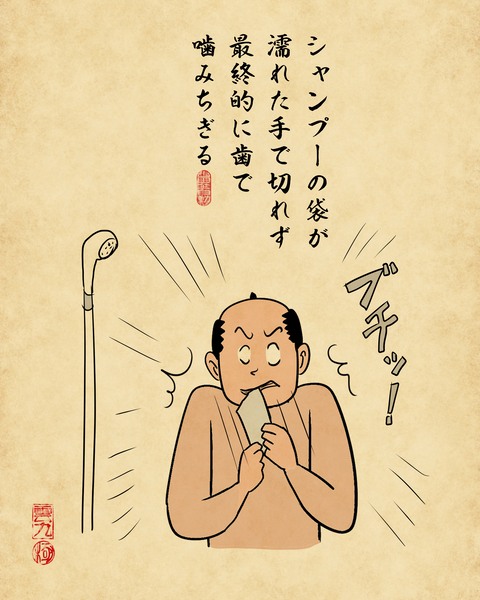 シャンプーの袋が
濡れた手で切れず
最終的に歯で
噛みちぎる
ブチッ!